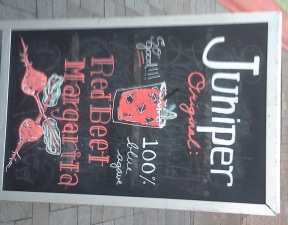 Juniper
Original:
So
Good!!!
100%
blue
agave
Red Beet
Margarita